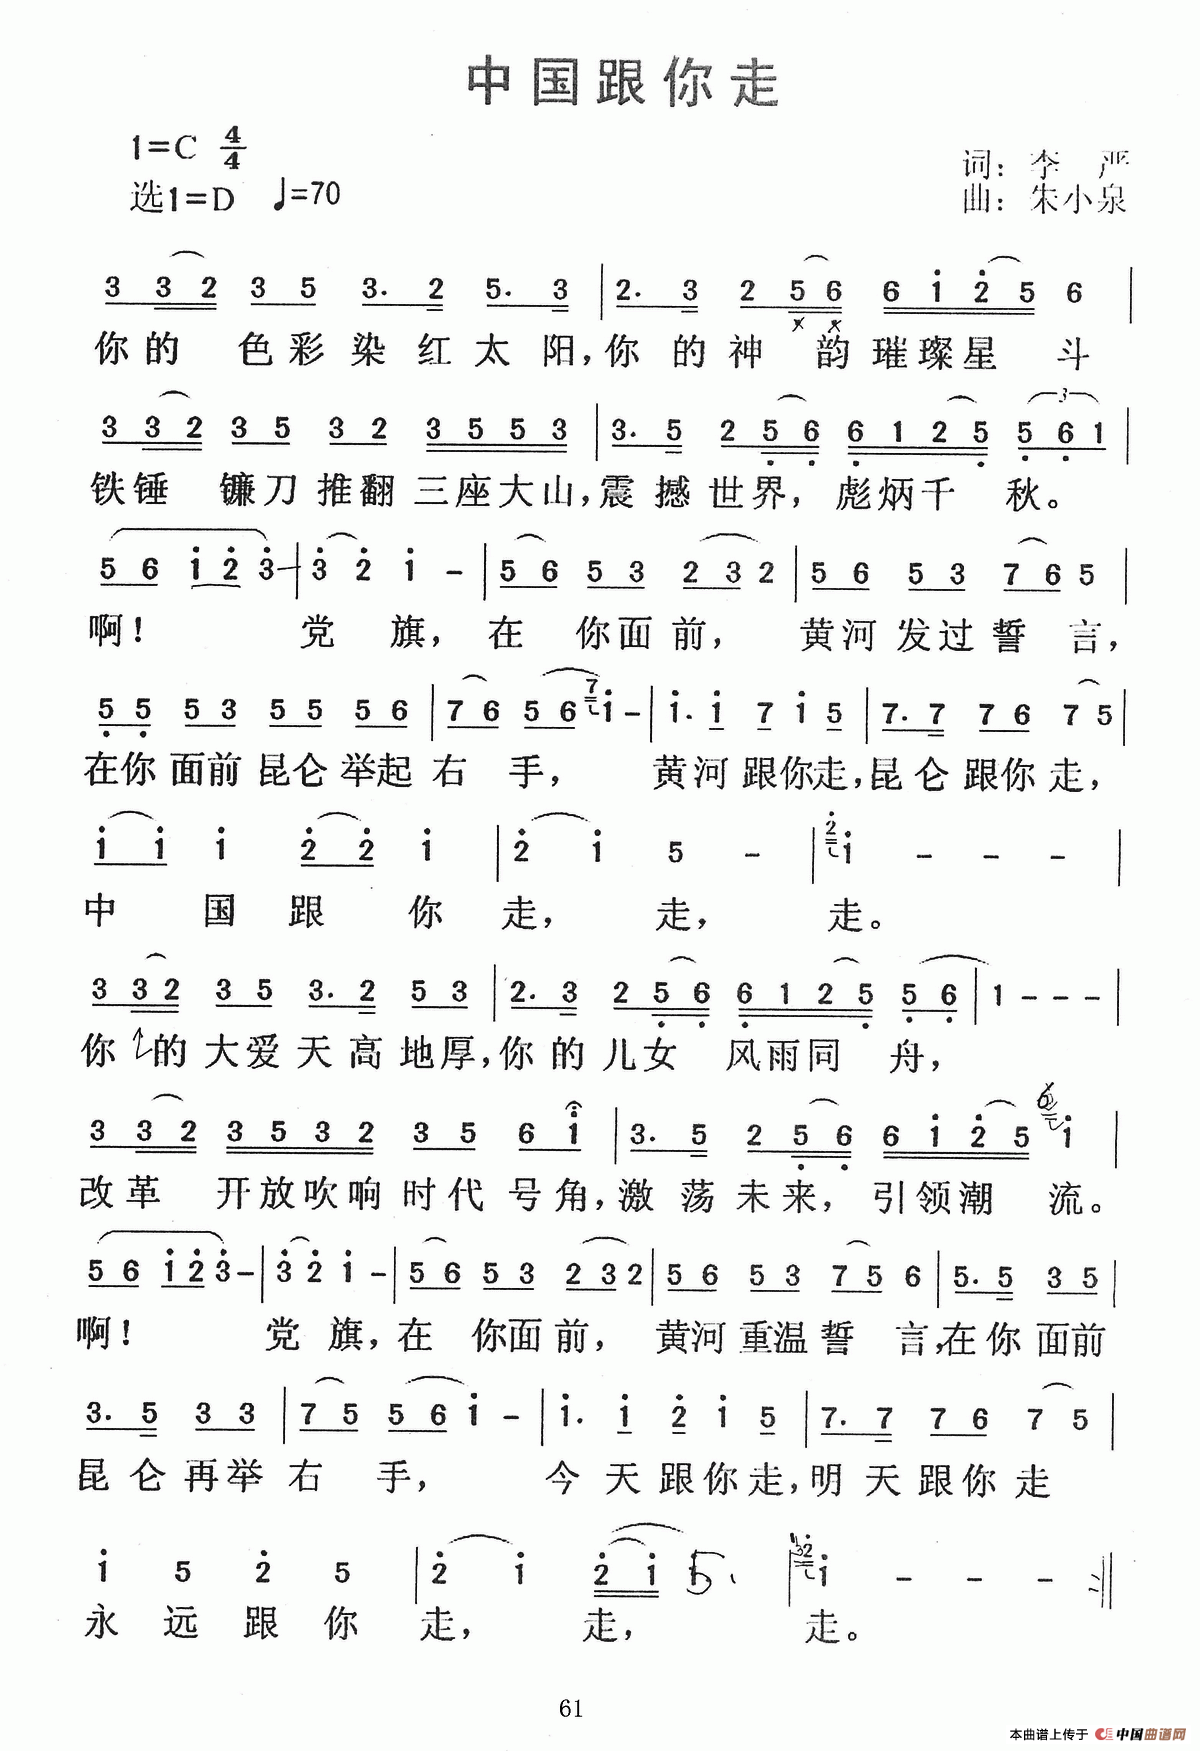 中国跟你走
1=C 4/4
词：李 严
选1=D ♩=70
曲：朱小泉
3 3 2 3 5 3· 2 5· 3 | 2· 3 2 5 6 6 1 2 5 6 |
你的 色彩染红太阳，你的神 韵璀璨星 斗
3 3 2 3 5 3 2 3 5 5 3 | 3· 5 2 5 6 6 1 2 5 5 6 1 |
铁锤 镰刀推翻三座大山，震撼世界，彪炳千 秋。
5 6 1 2 3 | 3 2 1 - | 5 6 5 3 2 3 2 | 5 6 5 3 7 6 5 |
啊！ 党 旗，在 你面前， 黄河发过誓 言，
5 5 5 3 5 5 5 6 | 7 6 5 6 7 1 - | 1· 1 7 1 5 | 7· 7 7 6 7 5 |
在你面前昆仑举起右 手， 黄河跟你走，昆仑跟你走，
1 1 1 2 2 1 | 2 1 5 - | 2 1 - - - |
中 国 跟 你 走， 走， 走。
3 3 2 3 5 3· 2 5 3 | 2· 3 2 5 6 6 1 2 5 5 6 | 1 - - - |
你 的大爱天高地厚，你的儿女 风雨同 舟，
3 3 2 3 5 3 2 3 5 6 1 | 3· 5 2 5 6 6 1 2 5 6 1 |
改革 开放吹响时代号角，激荡未来，引领潮 流。
5 6 1 2 3 - | 3 2 1 - | 5 6 5 3 2 3 2 | 5 6 5 3 7 5 6 | 5· 5 3 5 |
啊！ 党 旗，在 你面前， 黄河重温誓 言，在你面前
3· 5 3 3 | 7 5 5 6 1 - | 1· 1 2 1 5 | 7· 7 7 6 7 5 |
昆仑再举右 手， 今天跟你走，明天跟你走
1 5 2 5 | 2 1 2 1 5 | 3 2 1 - - - :||
永 远 跟 你 走， 走， 走。
61
本曲谱上传于 中国曲谱网